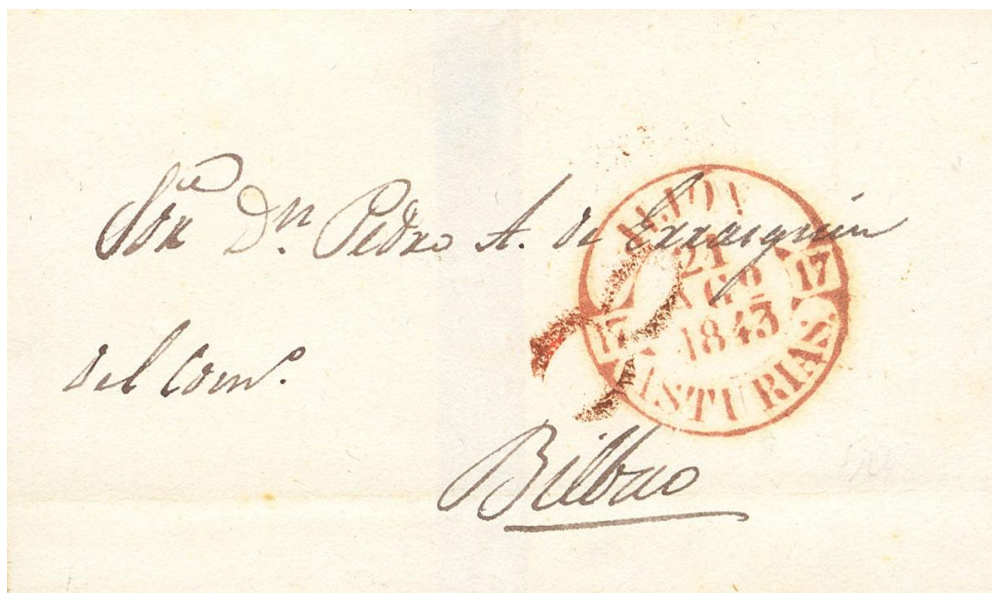 Sor Dn. Pedro A. de Errazquin
del Com.o
Bilbao
GIJON
21
AGO
1843
17 17
ASTURIAS.